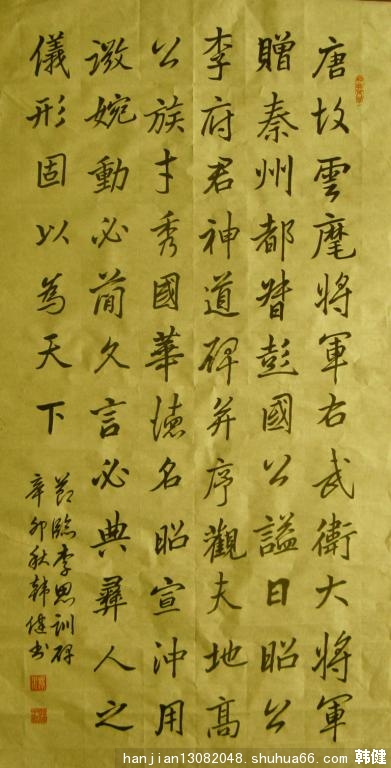 唐故雲麾將軍右武衛大將軍
贈秦州都督彭國公謚曰昭公
李府君神道碑并序觀夫地高
公族才秀國華德名昭宣沖用
微婉動必簡久言必典彝人之
儀形固以為天下
節臨李思訓碑
辛卯秋韓健书
hanjian13082048.shuhua66.com 韩健